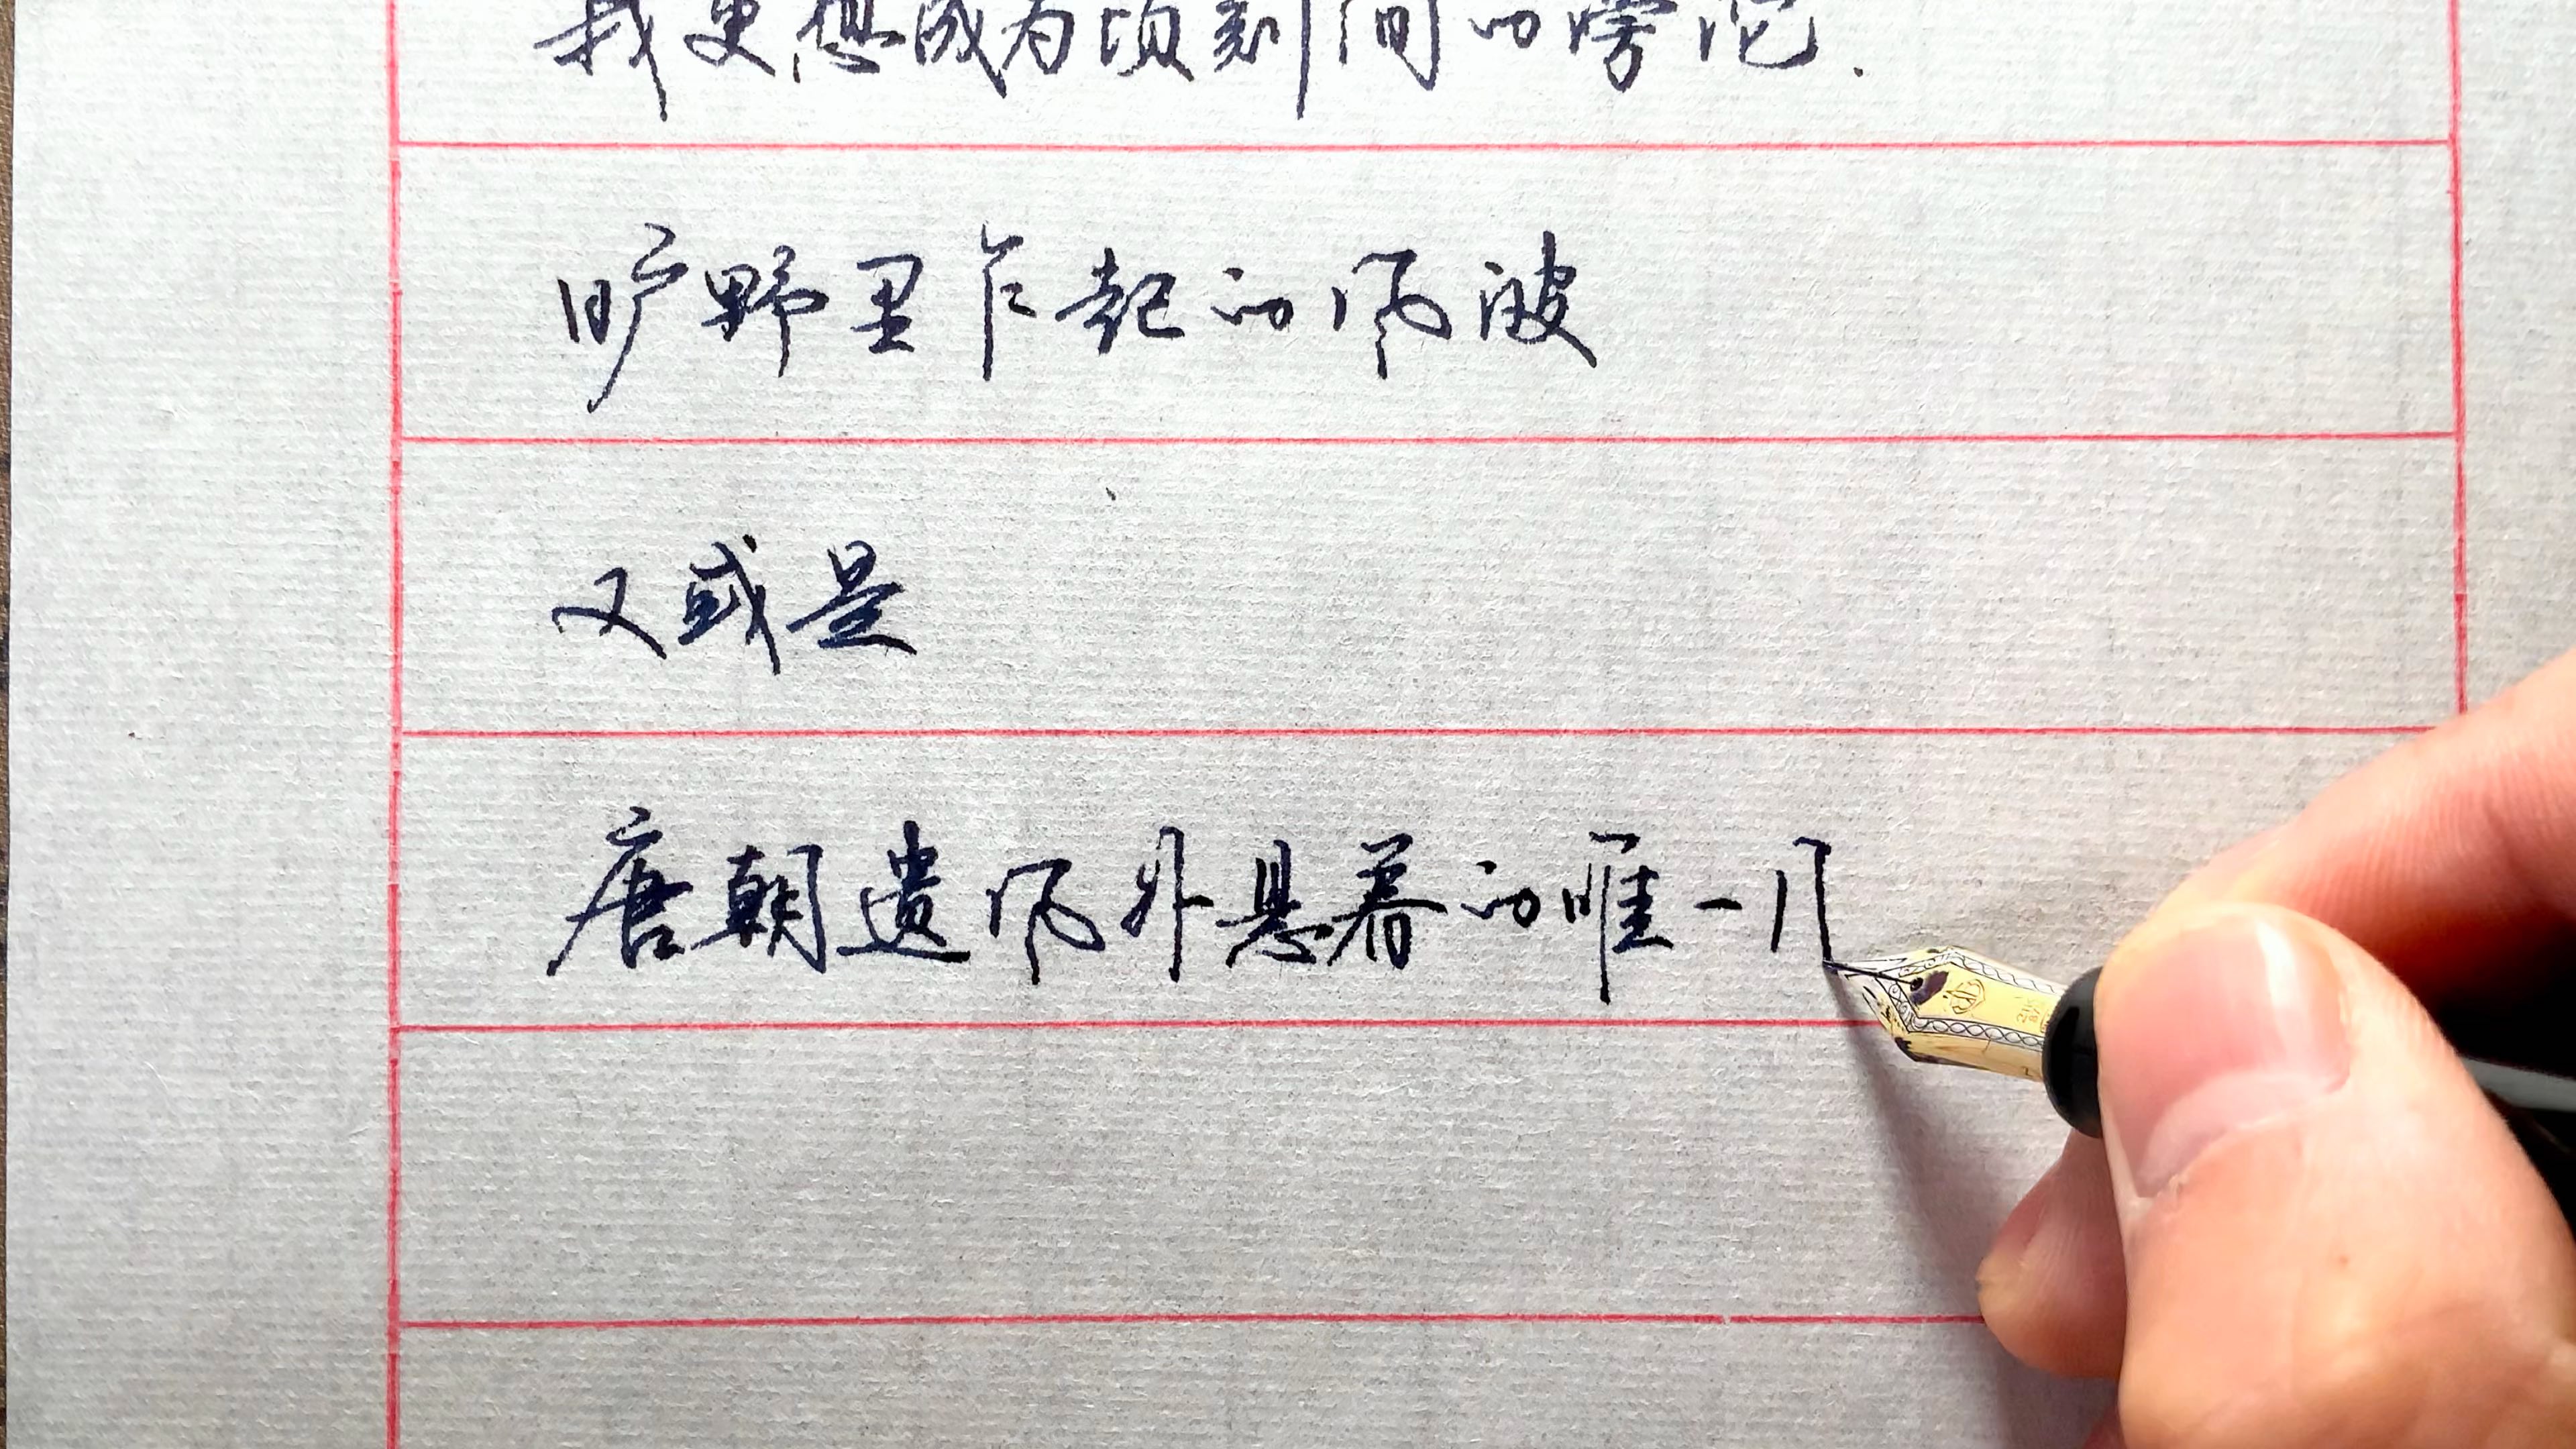 我更想成为顷刻间的滂沱.
旷野里乍起的风波
又或是
唐朝遗风外悬着的唯一